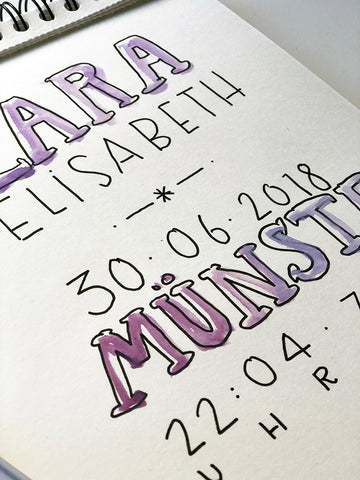 LARA
ELiSABETH
— * —
30.06.2018
MÜNSTE
22:04.
UHR